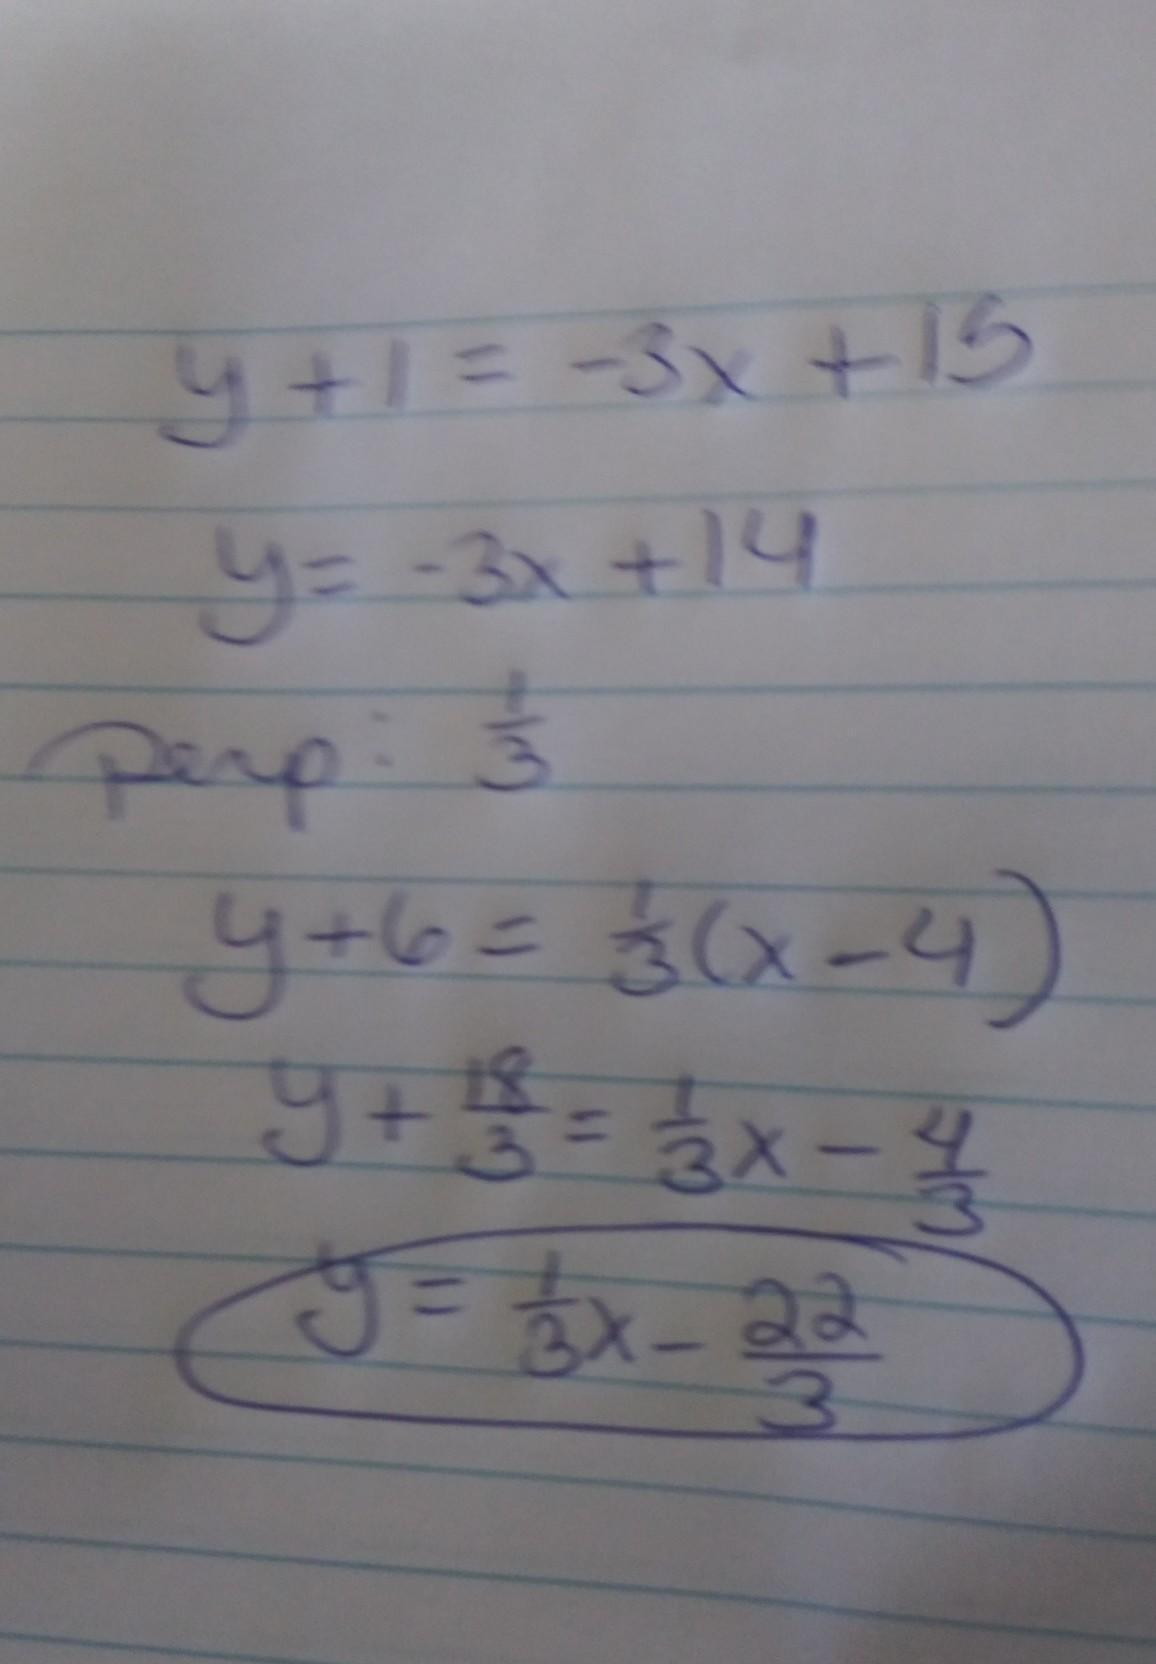 y + 1 = -3x + 15
y = -3x + 14
perp: 1/3
y + 6 = 1/3 (x - 4)
y + 18/3 = 1/3 x - 4/3
y = 1/3 x - 22/3